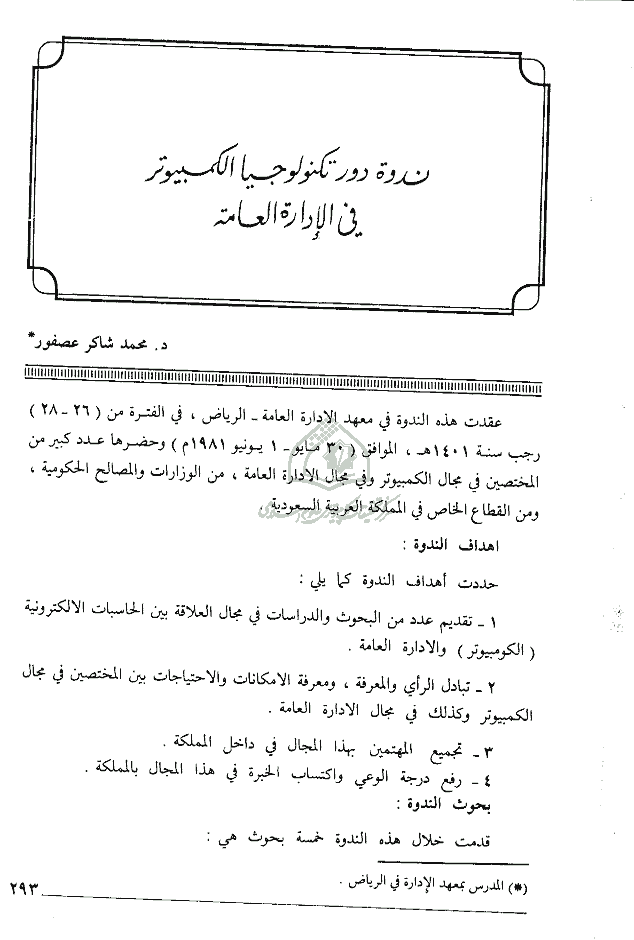 ندوة دور تكنولوجيا الكمبيوتر
في الإدارة العامة
د. محمد شاكر عصفور*
عقدت هذه الندوة في معهد الإدارة العامة ـ الرياض ، في الفترة من ( ٢٦ ـ ٢٨ )
رجب سنة ١٤٠١هـ ، الموافق ( ٣٠ مايو ـ ١ يونيو ١٩٨١م ) وحضرها عدد كبير من
المختصين في مجال الكمبيوتر وفي مجال الادارة العامة ، من الوزارات والمصالح الحكومية ،
ومن القطاع الخاص في المملكة العربية السعودية .
اهداف الندوة :
حددت أهداف الندوة كما يلي :
١ ـ تقديم عدد من البحوث والدراسات في مجال العلاقة بين الحاسبات الالكترونية
( الكومبيوتر ) والادارة العامة .
٢ ـ تبادل الرأي والمعرفة ، ومعرفة الامكانات والاحتياجات بين المختصين في مجال
الكمبيوتر وكذلك في مجال الادارة العامة .
٣ ـ تجميع المهتمين بهذا المجال في داخل المملكة .
٤ ـ رفع درجة الوعي واكتساب الخبرة في هذا المجال بالمملكة .
بحوث الندوة :
قدمت خلال هذه الندوة خمسة بحوث هي :
(*) المدرس بمعهد الإدارة في الرياض .
٢٩٣